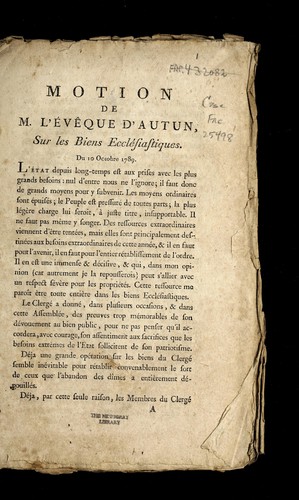 FRC.4.32082
Case
FRC
25498
MOTION
DE
M. L'ÉVÊQUE D'AUTUN,
Sur les Biens Ecclésiastiques.
Du 10 Octobre 1789.
L'ÉTAT depuis long-temps est aux prises avec les plus
grands besoins : nul d'entre nous ne l'ignore; il faut donc
de grands moyens pour y subvenir. Les moyens ordinaires
sont épuisés; le Peuple est pressuré de toutes parts; la plus
légère charge lui seroit, à juste titre, insupportable. Il
ne faut pas même y songer. Des ressources extraordinaires
viennent d'être tentées, mais elles sont principalement des-
tinées aux besoins extraordinaires de cette année, & il en faut
pour l'avenir, il en faut pour l'entier rétablissement de l'ordre.
Il en est une immense & décisive, & qui, dans mon opi-
nion (car autrement je la repousserois) peut s'allier avec
un respect sévère pour les propriétés. Cette ressource me
paroît être toute entière dans les biens Ecclésiastiques.
Le Clergé a donné, dans plusieurs occasions, & dans
cette Assemblée, des preuves trop mémorables de son
dévouement au bien public, pour ne pas penser qu'il ac-
cordera, avec courage, son assentiment aux sacrifices que les
besoins extrêmes de l'Etat sollicitent de son patriotisme.
Déja une grande opération sur les biens du Clergé
semble inévitable pour rétablir convenablement le sort
de ceux que l'abandon des dîmes a entièrement dé-
pouillés.
Déja, par cette seule raison, les Membres du Clergé
A
THE NEWBERRY
LIBRARY